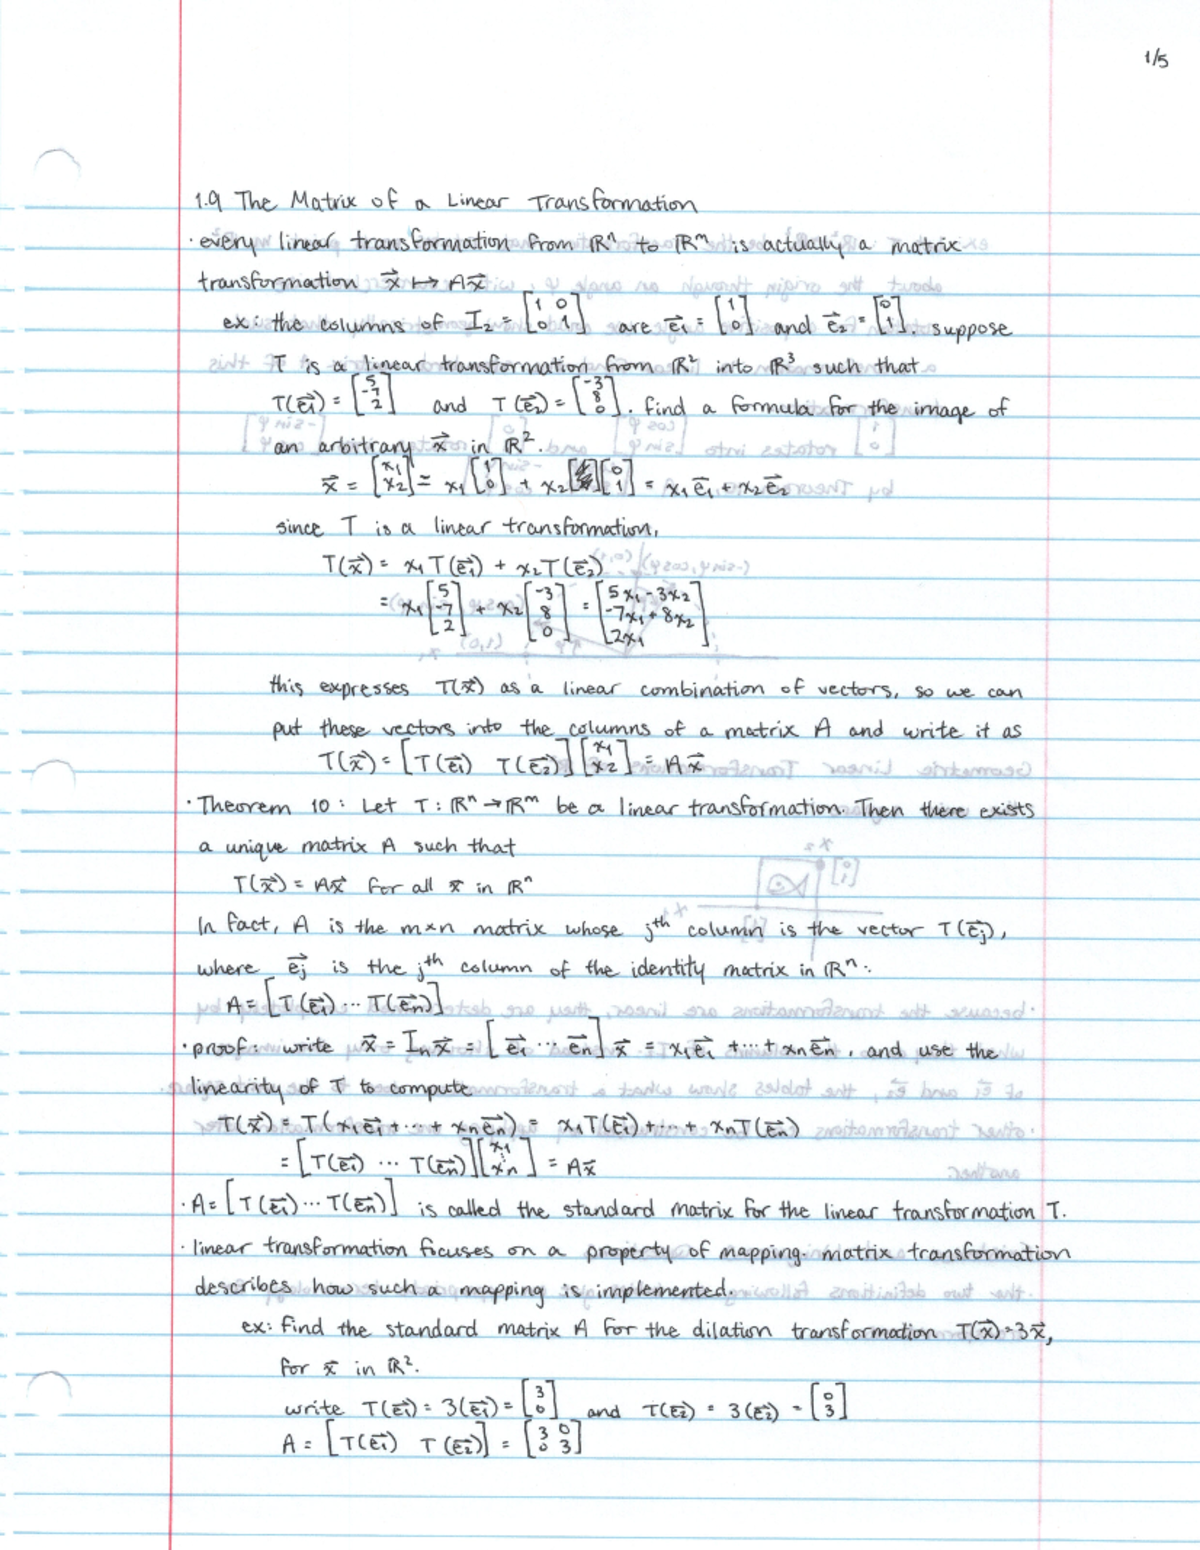 1/5
1.9 The Matrix of a Linear Transformation
· every linear transformation from ℝⁿ to ℝᵐ is actually a matrix
transformation x⃗ ↦ Ax⃗
ex: the columns of I₂ = [1 0; 0 1] are e⃗₁ = [1; 0] and e⃗₂ = [0; 1]. suppose
T is a linear transformation from ℝ² into ℝ³ such that
T(e⃗₁) = [5; -7; 2] and T(e⃗₂) = [-3; 8; 0]. find a formula for the image of
an arbitrary x⃗ in ℝ².
x⃗ = [x₁; x₂] = x₁[1; 0] + x₂[0; 1] = x₁e⃗₁ + x₂e⃗₂
since T is a linear transformation,
T(x⃗) = x₁T(e⃗₁) + x₂T(e⃗₂)
= x₁[5; -7; 2] + x₂[-3; 8; 0] = [5x₁ - 3x₂; -7x₁ + 8x₂; 2x₁]
this expresses T(x⃗) as a linear combination of vectors, so we can
put these vectors into the columns of a matrix A and write it as
T(x⃗) = [T(e⃗₁) T(e⃗₂)][x₁; x₂] = Ax⃗
· Theorem 10: Let T: ℝⁿ → ℝᵐ be a linear transformation. Then there exists
a unique matrix A such that
T(x⃗) = Ax⃗ for all x⃗ in ℝⁿ
In fact, A is the m×n matrix whose jᵗʰ column is the vector T(e⃗ⱼ),
where e⃗ⱼ is the jᵗʰ column of the identity matrix in ℝⁿ:
A = [T(e⃗₁) ··· T(e⃗ₙ)]
· proof: write x⃗ = Iₙx⃗ = [e⃗₁ ··· e⃗ₙ]x⃗ = x₁e⃗₁ + ··· + xₙe⃗ₙ, and use the
linearity of T to compute
T(x⃗) = T(x₁e⃗₁ + ··· + xₙe⃗ₙ) = x₁T(e⃗₁) + ··· + xₙT(e⃗ₙ)
= [T(e⃗₁) ··· T(e⃗ₙ)][x₁; ⋮; xₙ] = Ax⃗
· A = [T(e⃗₁) ··· T(e⃗ₙ)] is called the standard matrix for the linear transformation T.
· linear transformation focuses on a property of mapping. matrix transformation
describes how such a mapping is implemented.
ex: find the standard matrix A for the dilation transformation T(x⃗) = 3x⃗,
for x⃗ in ℝ².
write T(e⃗₁) = 3(e⃗₁) = [3; 0] and T(e⃗₂) = 3(e⃗₂) = [0; 3]
A = [T(e⃗₁) T(e⃗₂)] = [3 0; 0 3]